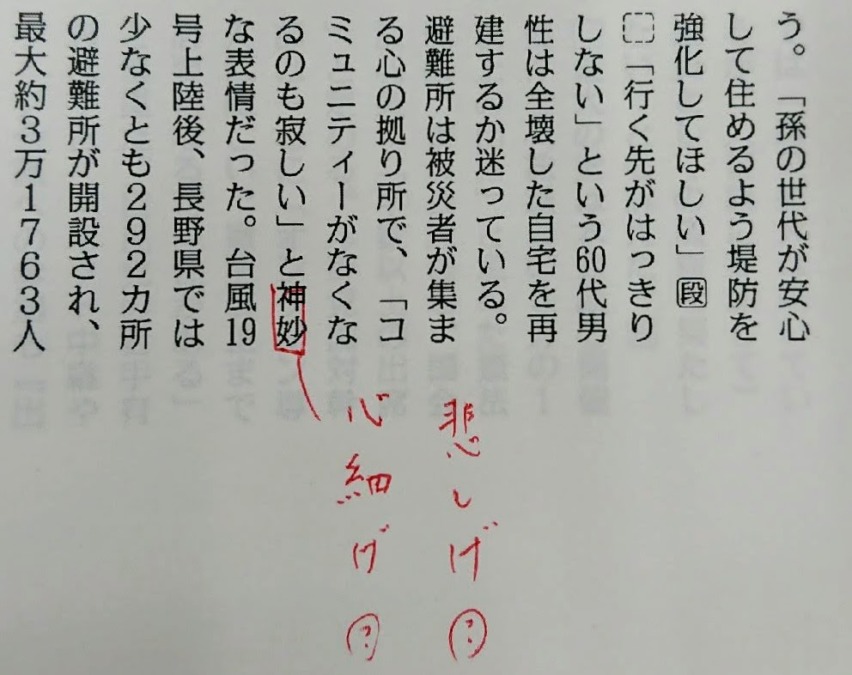 う。「孫の世代が安心
して住めるよう堤防を
強化してほしい」段
「行く先がはっきり
しない」という60代男
性は全壊した自宅を再
建するか迷っている。
避難所は被災者が集ま
る心の拠り所で、「コ
ミュニティーがなくな
るのも寂しい」と神妙
な表情だった。台風19
号上陸後、長野県では
少なくとも292カ所
の避難所が開設され、
最大約3万1763人
悲しげ?
心細げ?